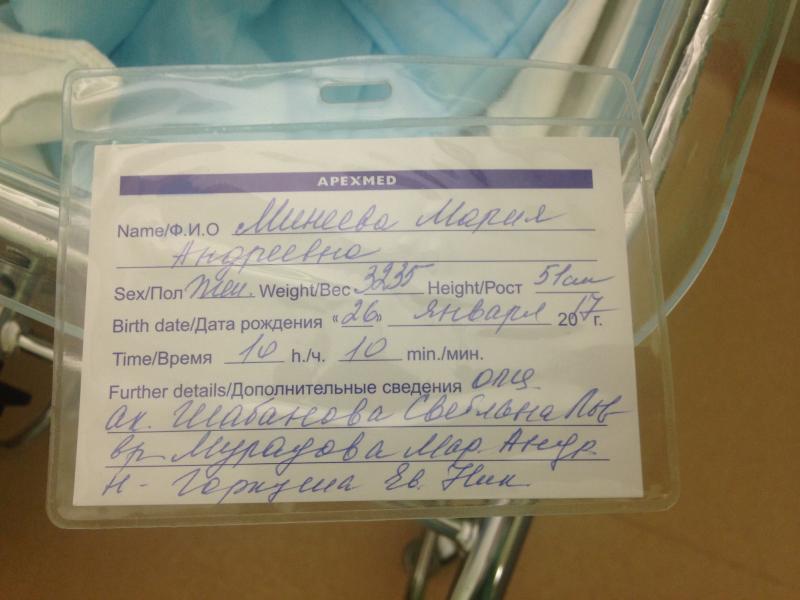 APEXMED
Name/Ф.И.О Минеева Мария
Андреевна
Sex/Пол Жен. Weight/Вес 3235 Height/Рост 51см
Birth date/Дата рождения «26» января 2017г.
Time/Время 10 h./ч. 10 min./мин.
Further details/Дополнительные сведения
ак. Шабанова Светлана Льв
вр. Мурадова Мар. Андр.
н- Ев. Ник.